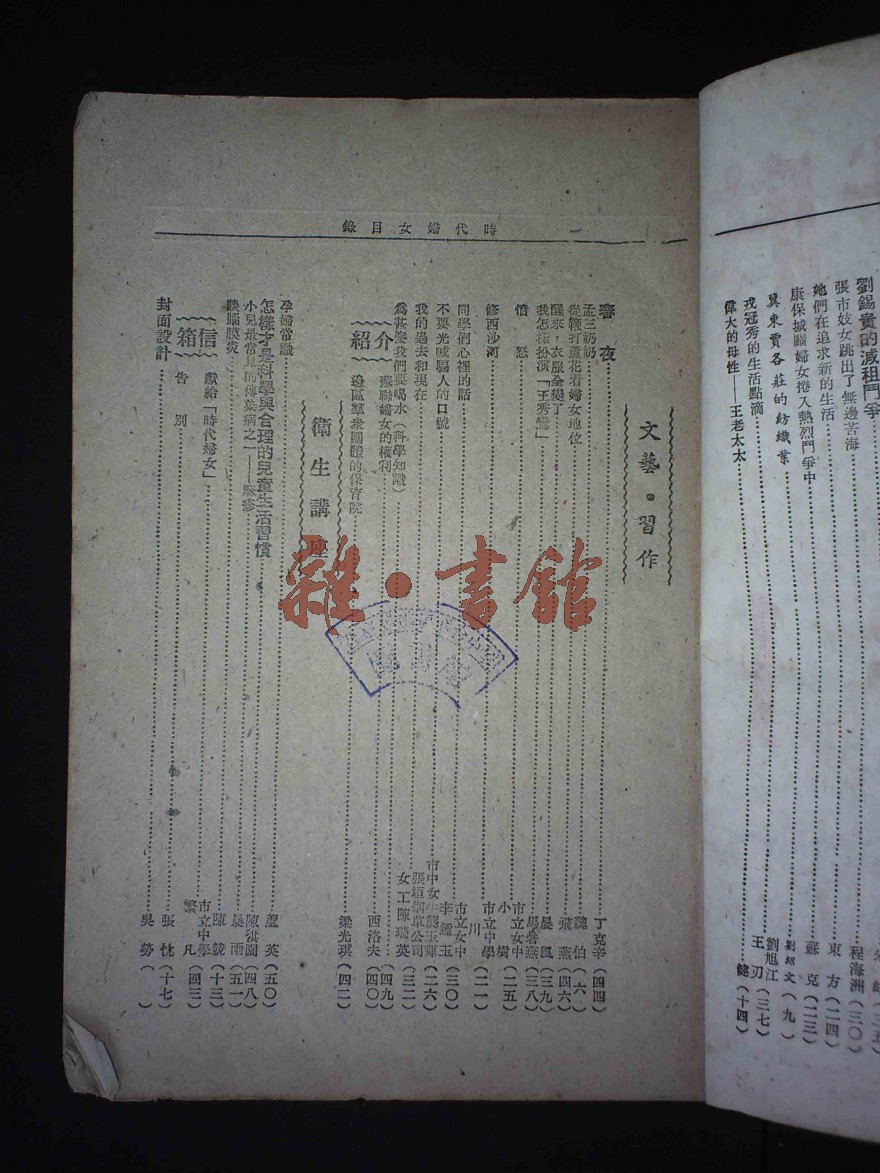 劉錫貴的減租鬥爭
張市妓女跳出了無邊苦海 程海洲(三〇)
她們在追求新的生活 東方(二四)
康保城關婦女捲入熱烈鬥爭中 蘇克(二三)
冀東賈各莊的紡織業 劉紹文(九)
戎冠秀的生活點滴 劉旭江 王刃(三七)
偉大的母性——王老太太 健(十四)
時代婦女目錄
文藝·習作
春夜 丁克辛(四四)
孟三奶奶 魏伯(六)
從鞭打蘆花看婦女地位 飛燕(四六)
醒來,衣服全變了 晨風(三九)
我怎樣扮演「王秀鸞」 馬書燕(三八)
憤怒 市立女中 小樹(二五)
修西沙河 市立中學 川(二一)
同學們心裡的話 市立女中 李鍾玉(三〇)
不要光喊騙人的口號 市中女生
我的過去和現在 張垣烟草公司 女工陳瑞英(三二)
為甚麼我們要喝水(科學知識) (四九)
介紹
蘇聯婦女的權利 西洛夫(四〇)
邊區羣衆團體的保育院 梁光琪(四二)
衛生講座
孕婦常識 蘆英(五〇)
怎樣才是科學與合理的兒童生活習慣 陳淇園(四八)
小兒最常見的傳染病之一——麻疹 晨雨(五一)
談腦膜炎 陳競(十三)
信箱
獻給「時代婦女」 市立中學 繁凡(四三)
告別 張忱(十七)
封面設計 吳勞( )
雜·書館